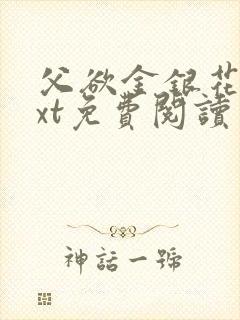 父欲金銀花
xt免費閱讀
神話一號